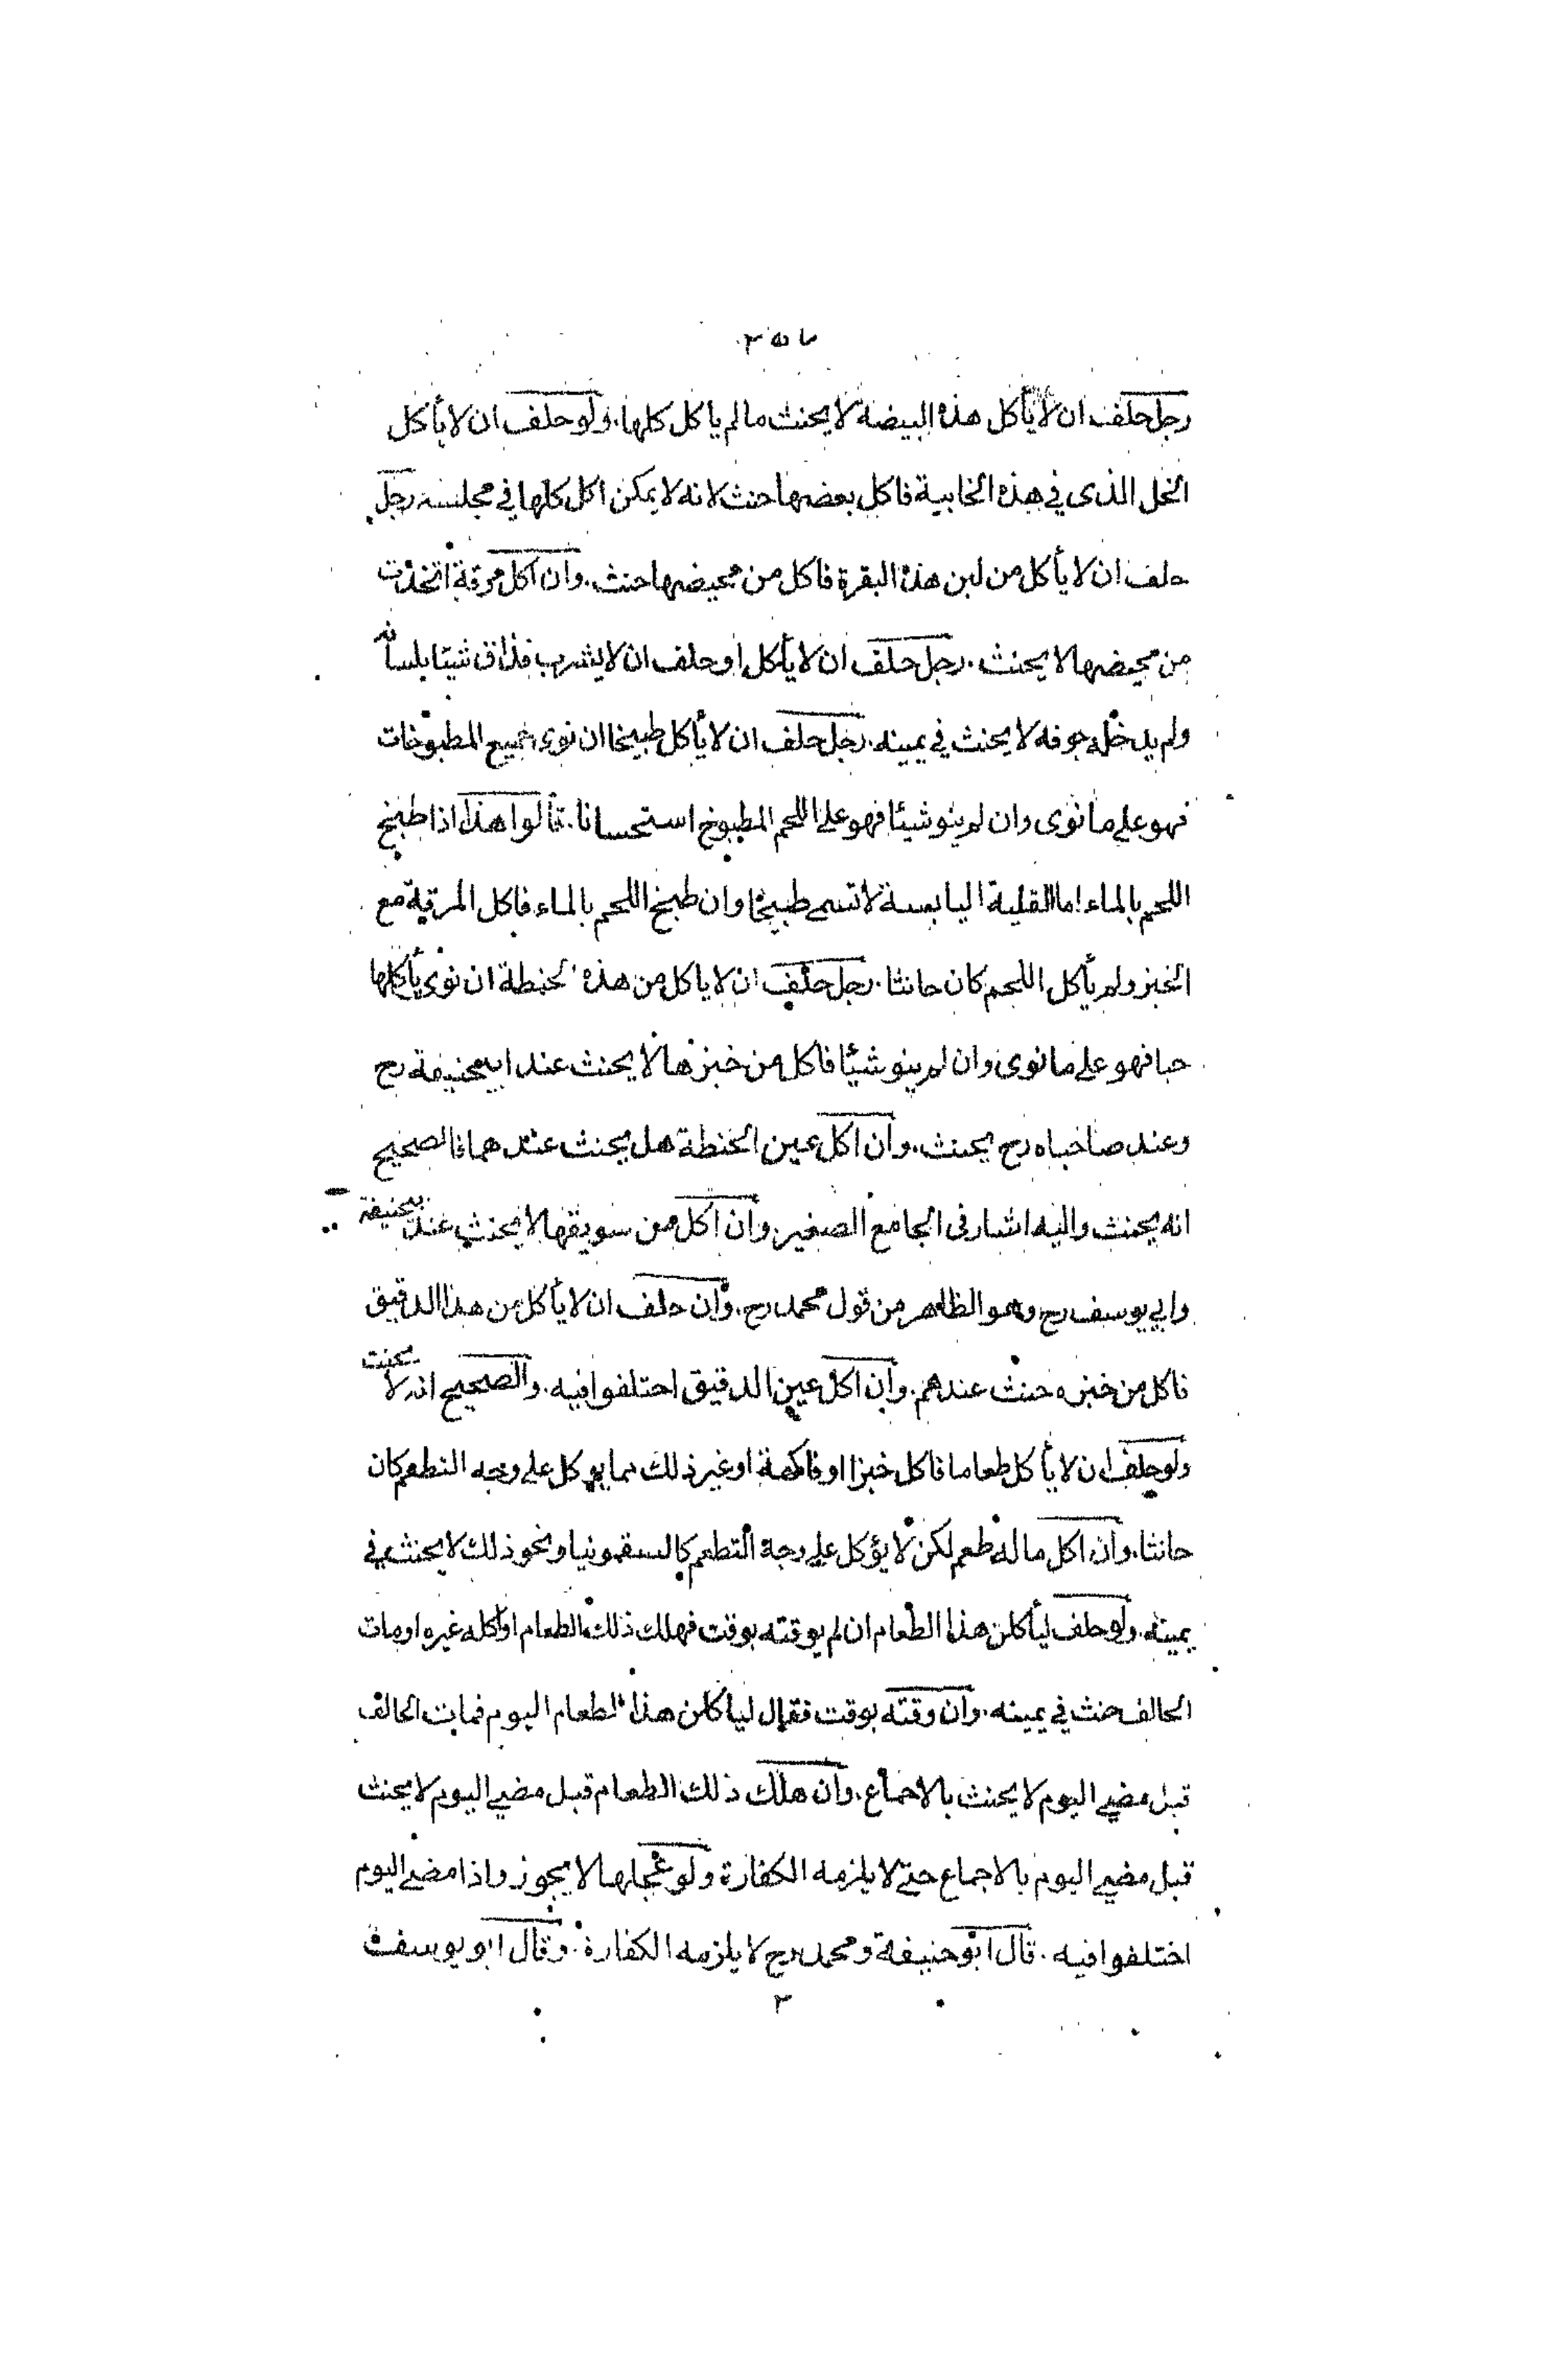 رجل حلف ان لا يأكل هذه البيضة لا يحنث ما لم ياكل كلها. ولو حلف ان لا يأكل
الخل الذى في هذه الخابية فاكل بعضها حنث لانه لا يمكن اكل كلها في مجلسه رجل
حلف ان لا يأكل من لبن هذه البقرة فاكل من مخيضها حنث. وان اكل مرقة اتخذت
من مخيضها لا يحنث. رجل حلف ان لا يأكل او حلف ان لا يشرب فذاق شيئا بلسانه
ولم يدخله جوفه لا يحنث في يمينه. رجل حلف ان لا يأكل طبيخا ان نوى جميع المطبوخات
فهو على ما نوى وان لم ينو شيئا فهو على اللحم المطبوخ استحسانا. قالوا هذا اذا طبخ
اللحم بالماء اما القلية اليابسة لا تسمى طبيخا وان طبخ اللحم بالماء فاكل المرقة مع
الخبز ولم يأكل اللحم كان حانثا. رجل حلف ان لا ياكل من هذه الحنطة ان نوى يأكلها
حبا فهو على ما نوى وان لم ينو شيئا فاكل من خبزها لا يحنث عند ابيحنيفة رح
وعند صاحباه رح يحنث. وان اكل عين الحنطة هل يحنث عندهما فالصحيح
انه يحنث واليه اشار فى الجامع الصغير. وان اكل من سويقها لا يحنث عند ابيحنيفة
وابي يوسف رح وهو الظاهر من قول محمد رح. وان حلف ان لا يأكل من هذا الدقيق
فاكل من خبزه حنث عندهم. وان اكل عين الدقيق اختلفوا فيه. والصحيح انه لا يحنث
ولو حلف ان لا يأكل طعاما فاكل خبزا او فاكهة او غير ذلك مما يوكل على وجه التطعم كان
حانثا. وان اكل ما له طعم لكن لا يؤكل على وجه التطعم كالسقمونيا ونحو ذلك لا يحنث في
يمينه. ولو حلف ليأكلن هذا الطعام ان لم يوقته بوقت فهلك ذلك الطعام او اكله غيره او مات
الحالف حنث في يمينه. وان وقته بوقت فقال لياكلن هذا الطعام اليوم فمات الحالف
قبل مضي اليوم لا يحنث بالاجماع. وان هلك ذلك الطعام قبل مضي اليوم لا يحنث
قبل مضي اليوم بالاجماع حتى لا يلزمه الكفارة ولو عجلها لا يجوز واذا مضى اليوم
اختلفوا فيه. قال ابو حنيفة ومحمد رح لا يلزمه الكفارة. وقال ابو يوسف